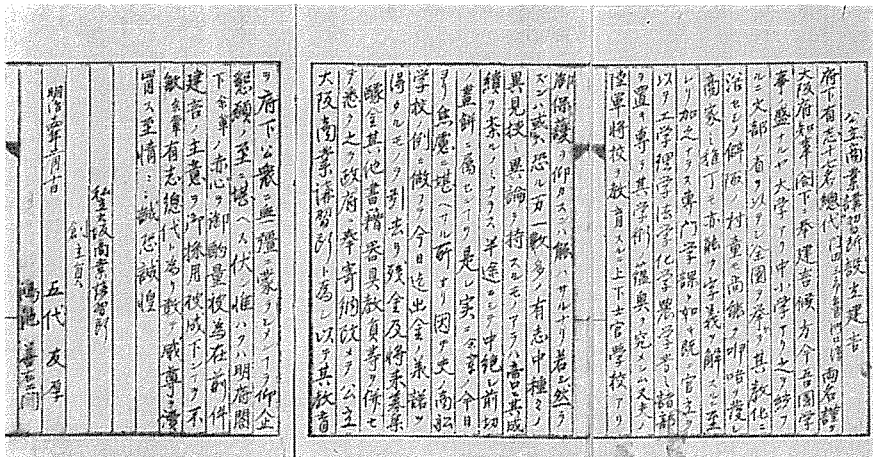 公立商業講習所設立建言
府下有志十七名総代 両名謹テ
大阪府知事閣下ニ奉建言候方今吾国学
事ノ盛ナルヤ大学アリ中小学アリ之ヲ紡フ
ルニ文部ノ省ヲ以テシ全国ヲ挙テ其教化ニ
浴セシメ僻陬ノ村童モ商舗ノ
商家ノ 丁モ亦能ク字義ヲ解スルニ至
レリ加之ナラス専門学課ノ如キ既ニ官立ヲ
以テ工学理学法学化学農学等ノ諸部
ヲ置キ専ラ其学術ノ蘊奥ヲ究メシム又夫ノ
陸軍将校ヲ教育スル上下士官学校アリ
御保護ヲ仰カスンハ 然ラ
スンハ或ハ恐ル方一数多ノ有志中種々ノ
異見挟ミ異論ヲ持スルモノアラハ啻ニ其成
績ヲ紊ルノミナラス半途ニシテ中絶シ前功
ノ画餅ニ属センコヲ是レ実ニ余輩ノ今日
ヨリ焦慮ニ堪ヘサル所ナリ因テ夫ノ商船
学校ノ例ニ倣フテ今日迄出金ノ義諾ヲ
得タルモノヲ引去リ残金及将来募集
ノ醵金其他書籍器具教員等ヲ併セ
テ悉ク之ヲ政府ニ奉寄納改メテ公立
大阪商業講習所ト為シ以テ其教育
ヲ府下公衆ニ無疆ニ蒙ラシメンコヲ仰企
懇願ノ至ニ堪ヘス伏シテ惟ハクハ明府閣
下余輩ノ赤心ヲ御酌量被為在前件
建言ノ主意ヲ御採用被成下ンコヲ不
敏余輩有志総代ト為リ敢テ威尊ヲ瀆
冒ス至情ニ 誠恐誠惶
私立大阪商業講習所
創立員
明治
五代友厚
鴻池善右衛門